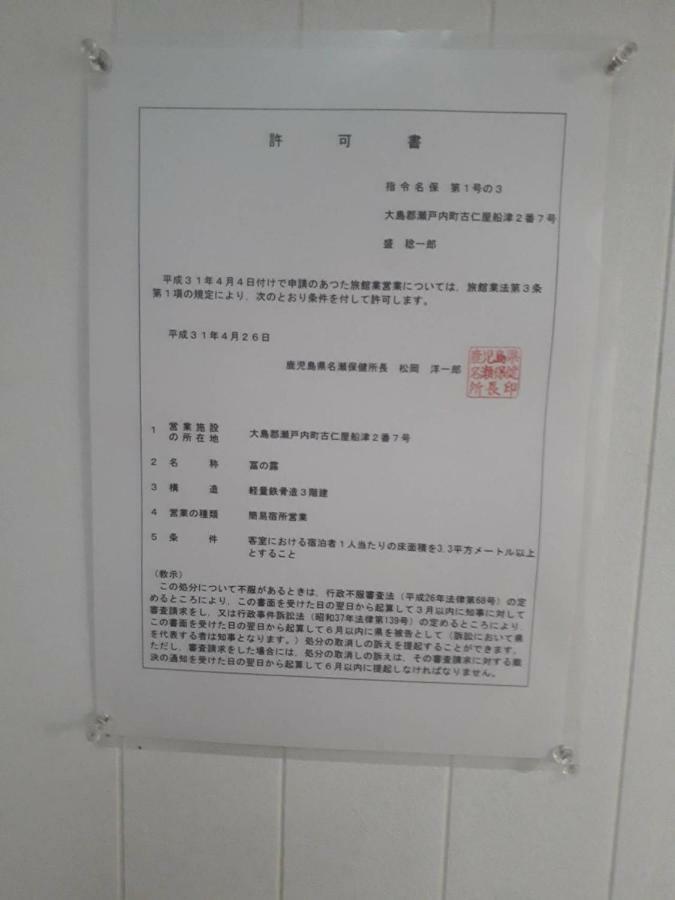 許可書
指令名保 第1号の3
大島郡瀬戸内町古仁屋船津2番7号
盛 稔一郎
平成31年4月4日付けで申請のあつた旅館業営業については、旅館業法第3条
第1項の規定により、次のとおり条件を付して許可します。
平成31年4月26日
鹿児島県名瀬保健所長 松岡 洋一郎
鹿児島県
名瀬保健
所長印
1 営業施設の所在地 大島郡瀬戸内町古仁屋船津2番7号
2 名称 冨の露
3 構造 軽量鉄骨造3階建
4 営業の種類 簡易宿所営業
5 条件 客室における宿泊者1人当たりの床面積を3.3平方メートル以上
とすること
(教示)
この処分について不服があるときは、行政不服審査法(平成26年法律第68号)の定
めるところにより、この書面を受けた日の翌日から起算して3月以内に知事に対して
審査請求をし、又は行政事件訴訟法(昭和37年法律第139号)の定めるところにより、
この書面を受けた日の翌日から起算して6月以内に県を被告として(訴訟において県
を代表する者は知事となります。)処分の取消しの訴えを提起することができます。
ただし、審査請求をした場合には、処分の取消しの訴えは、その審査請求に対する裁
決の通知を受けた日の翌日から起算して6月以内に提起しなければなりません。